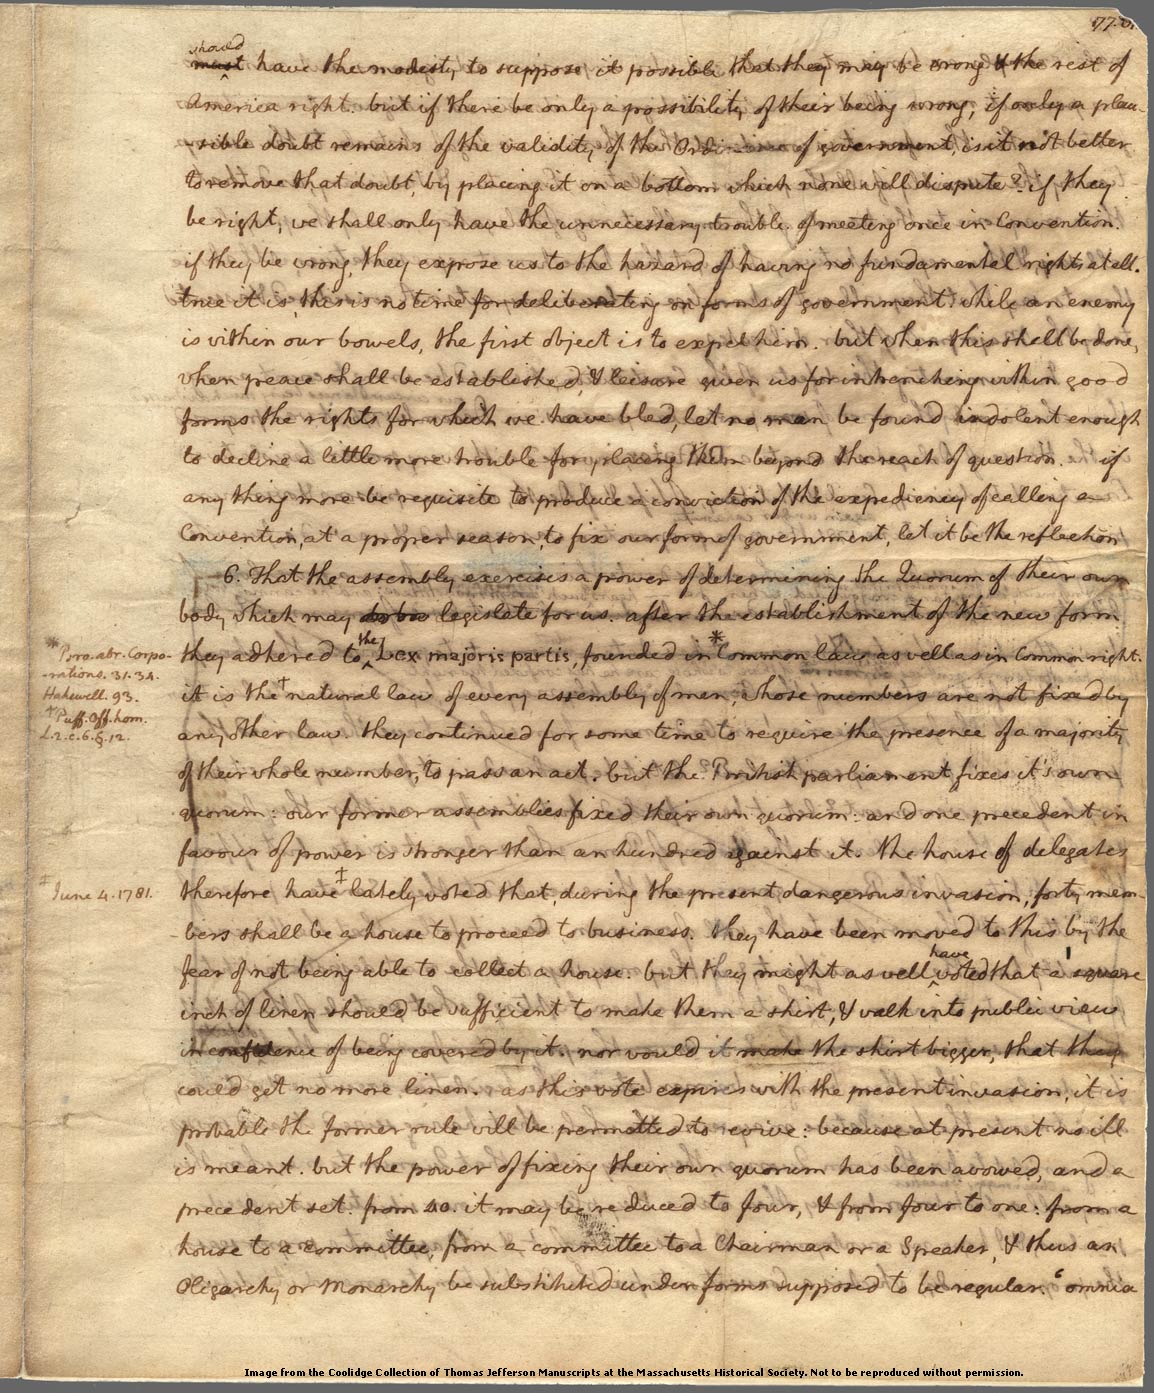 77.
should
must have the modesty to suppose it possible that they may be wrong & the rest of
America right. but if there be only a possibility of their being wrong, if only a plau-
-sible doubt remains of the validity of the Ordinance of government, is it not better
to remove that doubt, by placing it on a bottom which none will dispute? if they
be right, we shall only have the unnecessary trouble of meeting once in Convention.
if they be wrong, they expose us to the hazard of having no fundamental rights at all.
true it is, this is no time for deliberating on forms of government. while an enemy
is within our bowels, the first object is to expel him. but when this shall be done,
when peace shall be established, & leisure given us for intrenching within good
forms the rights for which we have bled, let no man be found indolent enough
to decline a little more trouble for placing them beyond the reach of question. if
any thing more be requisite to produce a conviction of the expediency of calling a
Convention, at a proper season, to fix our form of government, let it be the reflection
6. That the assembly exercises a power of determining the Quorum of their own
body which may legislate for us. after the establishment of the new form
they adhered to the Lex majoris partis, founded in * Common law as well as in Common right.
* Bro. abr. Corpo-
-rations. 31. 34.
Hakewell. 93.
† Puff. Off. hom.
L.2.c.6.§.12.
it is the † natural law of every assembly of men, whose numbers are not fixed by
any other law. they continued for some time to require the presence of a majority
of their whole number, to pass an act. but the British parliament fixes it's own
quorum: our former assemblies fixed their own quorum: and one precedent in
favour of power is stronger than an hundred against it. the house of delegates
‡ June 4. 1781.
therefore have ‡ lately voted that, during the present dangerous invasion, forty mem-
-bers shall be a house to proceed to business. they have been moved to this by the
fear of not being able to collect a house. but they might as well have voted that a square
inch of linen should be sufficient to make them a shirt, & walk into public view
in confidence of being covered by it. nor would it make the shirt bigger, that they
could get no more linen. as this vote expires with the present invasion, it is
probable the former rule will be permitted to revive: because at present no ill
is meant. but the power of fixing their own quorum has been avowed, and a
precedent set. from 40. it may be reduced to four, & from four to one: from a
house to a committee, from a committee to a Chairman or a Speaker, & thus an
Oligarchy or Monarchy be substituted under forms supposed to be regular. 'omnia
Image from the Coolidge Collection of Thomas Jefferson Manuscripts at the Massachusetts Historical Society. Not to be reproduced without permission.